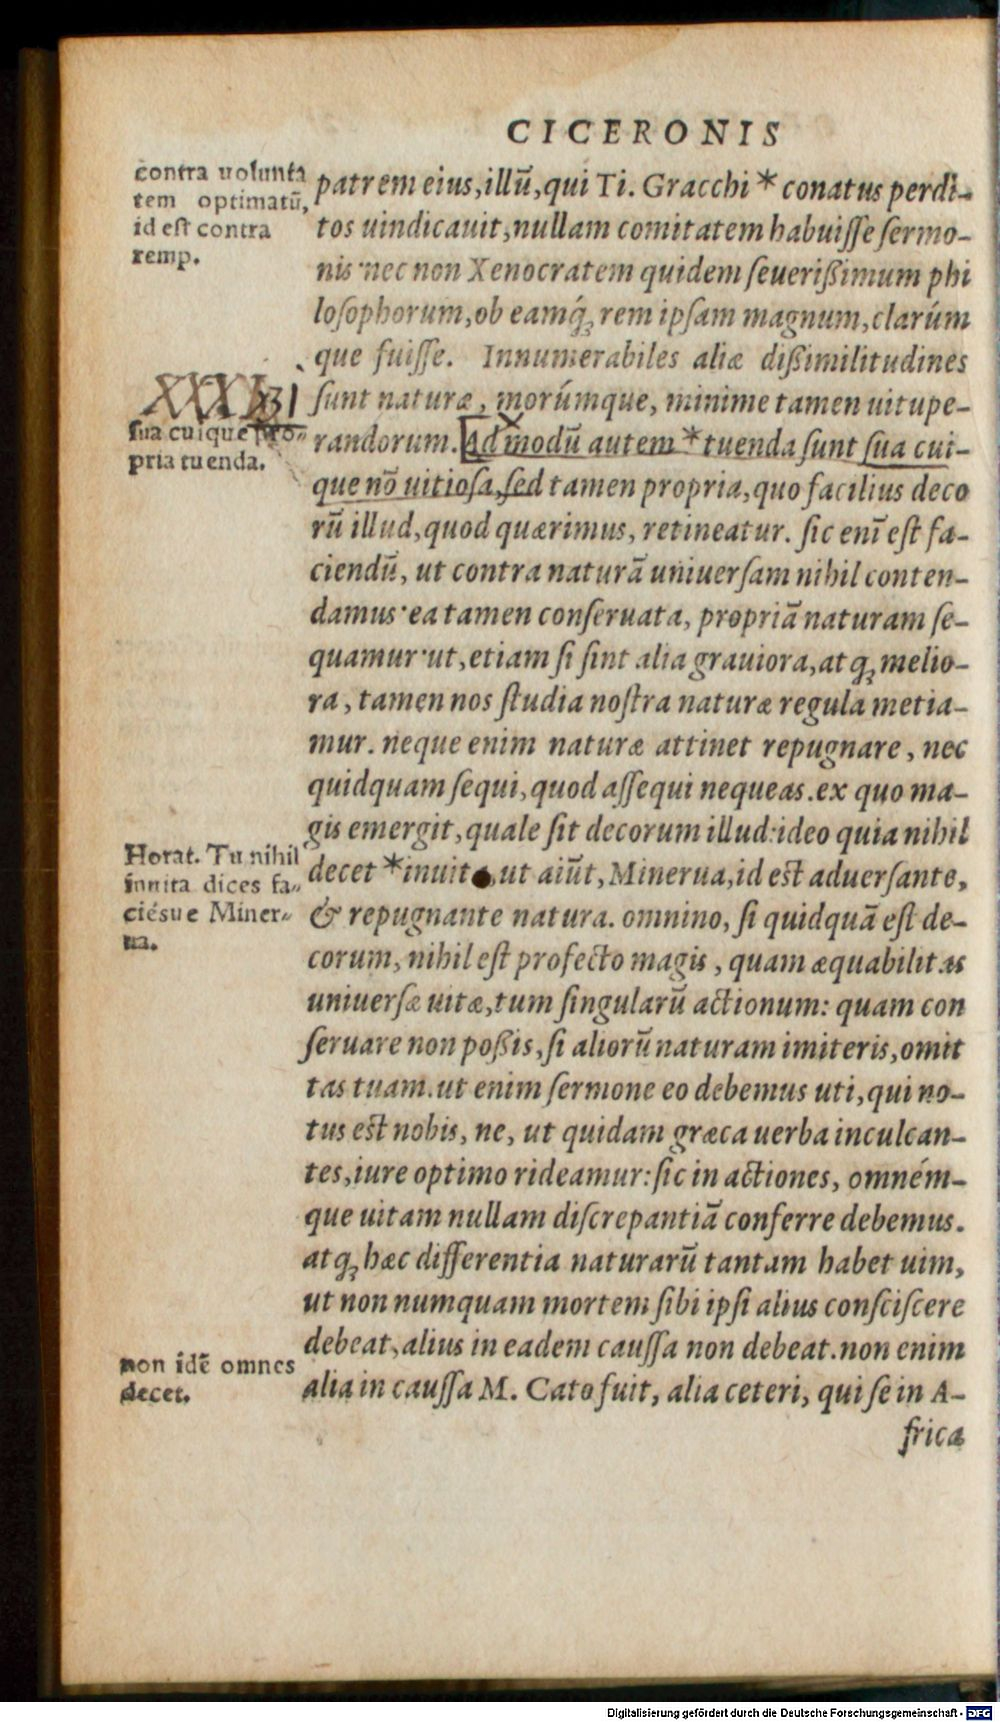 CICERONIS
contra uolunta
tem optimatũ,
id est contra
remp.
patrem eius, illũ, qui Ti. Gracchi * conatus perdi-
tos uindicauit, nullam comitatem habuisse sermo-
nis· nec non Xenocratem quidem seuerißimum phi
losophorum, ob eamq́ꝫ rem ipsam magnum, clarúm
que fuisse. Innumerabiles aliæ dißimilitudines
sunt naturæ, morúmque, minime tamen uitupe-
sua cuique pro-
pria tuenda.
randorum. Admodũ autem * tuenda sunt sua cui-
que nõ uitiosa, sed tamen propria, quo facilius deco
rũ illud, quod quærimus, retineatur. sic enĩ est fa-
ciendũ, ut contra naturã uniuersam nihil conten-
damus· ea tamen conseruata, propriã naturam se-
quamur· ut, etiam si sint alia grauiora, atqꝫ melio-
ra, tamen nos studia nostra naturæ regula metia-
mur. neque enim naturæ attinet repugnare, nec
quidquam sequi, quod assequi nequeas. ex quo ma-
gis emergit, quale sit decorum illud: ideo quia nihil
Horat. Tu nihil
inuita dices fa-
ciésue Miner-
ua.
decet * inuita, ut aiũt, Minerua, id est aduersante,
& repugnante natura. omnino, si quidquã est de-
corum, nihil est profecto magis, quam æquabilitas
uniuersæ uitæ, tum singularũ actionum: quam con
seruare non poßis, si aliorũ naturam imiteris, omit
tas tuam. ut enim sermone eo debemus uti, qui no-
tus est nobis, ne, ut quidam græca uerba inculcan-
tes, iure optimo rideamur: sic in actiones, omném-
que uitam nullam discrepantiã conferre debemus.
atqꝫ hæc differentia naturarũ tantam habet uim,
ut non numquam mortem sibi ipsi alius consciscere
debeat, alius in eadem caussa non debeat. non enim
non idẽ omnes
decet.
alia in caussa M. Cato fuit, alia ceteri, qui se in A-
frica
Digitalisierung gefördert durch die Deutsche Forschungsgemeinschaft - DFG